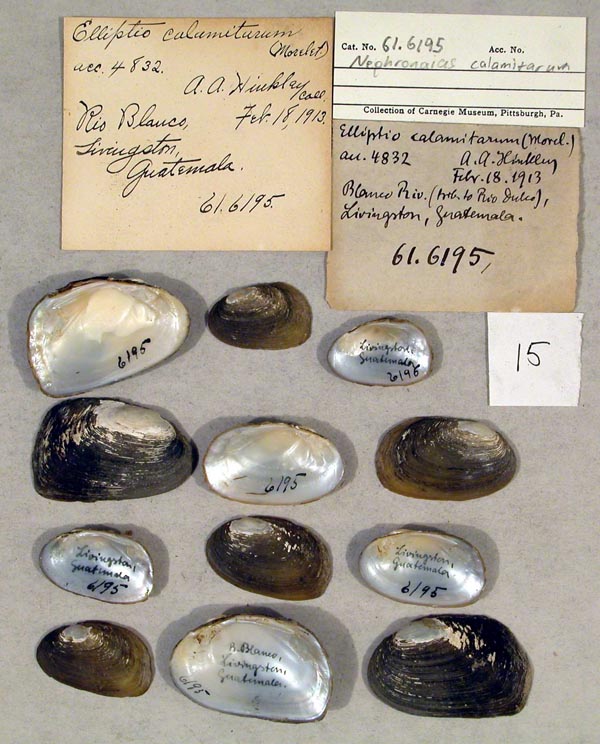 Elliptio calamitarum
(Morelet)
acc. 4832.
A. A. Hinkley
Coll.
Rio Blanco, Feb. 18, 1913.
Livingston,
Guatemala.
61.6195.
Cat. No. 61.6195 Acc. No.
Nephronaias calamitarum
Collection of Carnegie Museum, Pittsburgh, Pa.
Elliptio calamitarum (Morel.)
acc. 4832 A. A. Hinkley
Febr. 18. 1913
Blanco Riv. (trib. to Rio Dulce),
Livingston, Guatemala.
61.6195,
15
6195
Livingston,
Guatemala
6195
6195
Livingston,
Guatemala
6195
Livingston,
Guatemala
6195
R. Blanco,
Livingston,
Guatemala.
6195